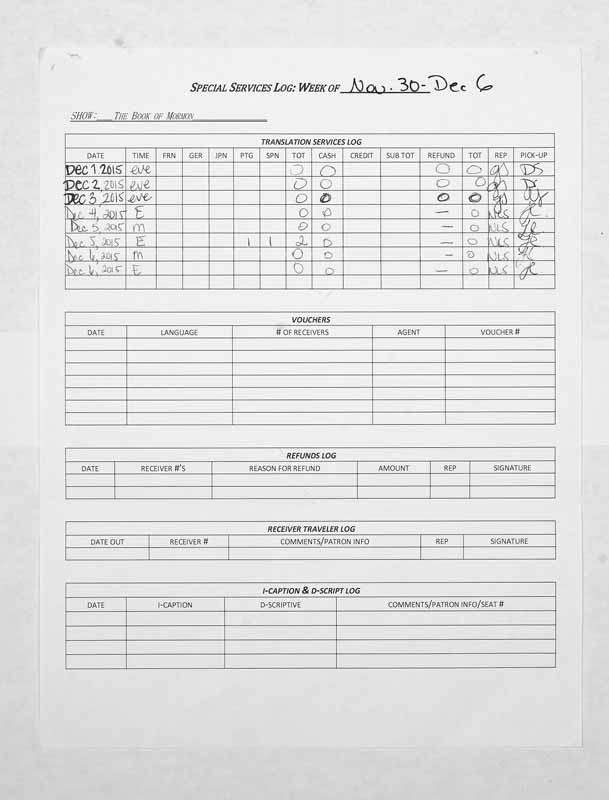 SPECIAL SERVICES LOG: WEEK OF Nov. 30-Dec 6
SHOW: THE BOOK OF MORMON
TRANSLATION SERVICES LOG
DATE TIME FRN GER JPN PTG SPN TOT CASH CREDIT SUB TOT REFUND TOT REP PICK-UP
Dec 1.2015 eve 0 0 0 0 gs DS
Dec 2, 2015 eve 0 0 0 0 gs
Dec 3, 2015 eve 0 0 0 0 gs
Dec 4, 2015 E 0 0 — 0 NLS
Dec 5, 2015 m 0 0 — 0 NLS
Dec 5, 2015 E 1 1 2 0 — 0 NLS
Dec 6, 2015 m 0 0 — 0 NLS
Dec 6, 2015 E 0 0 — 0 NLS
VOUCHERS
DATE LANGUAGE # OF RECEIVERS AGENT VOUCHER #
REFUNDS LOG
DATE RECEIVER #'S REASON FOR REFUND AMOUNT REP SIGNATURE
RECEIVER TRAVELER LOG
DATE OUT RECEIVER # COMMENTS/PATRON INFO REP SIGNATURE
I-CAPTION & D-SCRIPT LOG
DATE I-CAPTION D-SCRIPTIVE COMMENTS/PATRON INFO/SEAT #